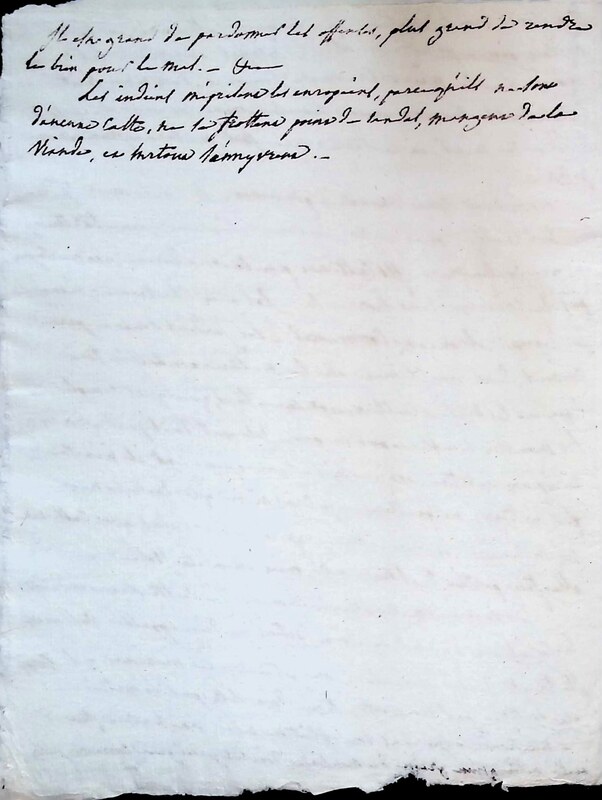 Il est grand de pardonner les offenses, plus grand de rendre
le bien pour le mal. — &c —
Les indiens méprisent les européens, parcequ'ils ne sont
d'aucune Caste, ne se frottent point de sandal, mangent de la
Viande, et surtout s'ennyvrent. —